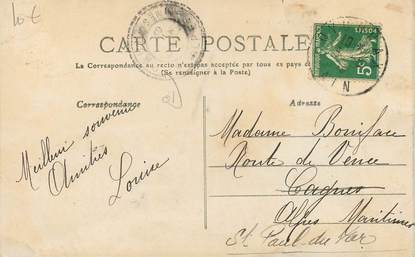 10 €
CARTE POSTALE
La Correspondance au recto n'est pas acceptée par tous les pays
(Se renseigner à la Poste)
Correspondance
Adresse
Meilleur souvenir
Amitiés
Louise
Madame Boniface
Route de Vence
Cagnes
Alpes Maritimes
St Paul-du-Var
POSTES
5c